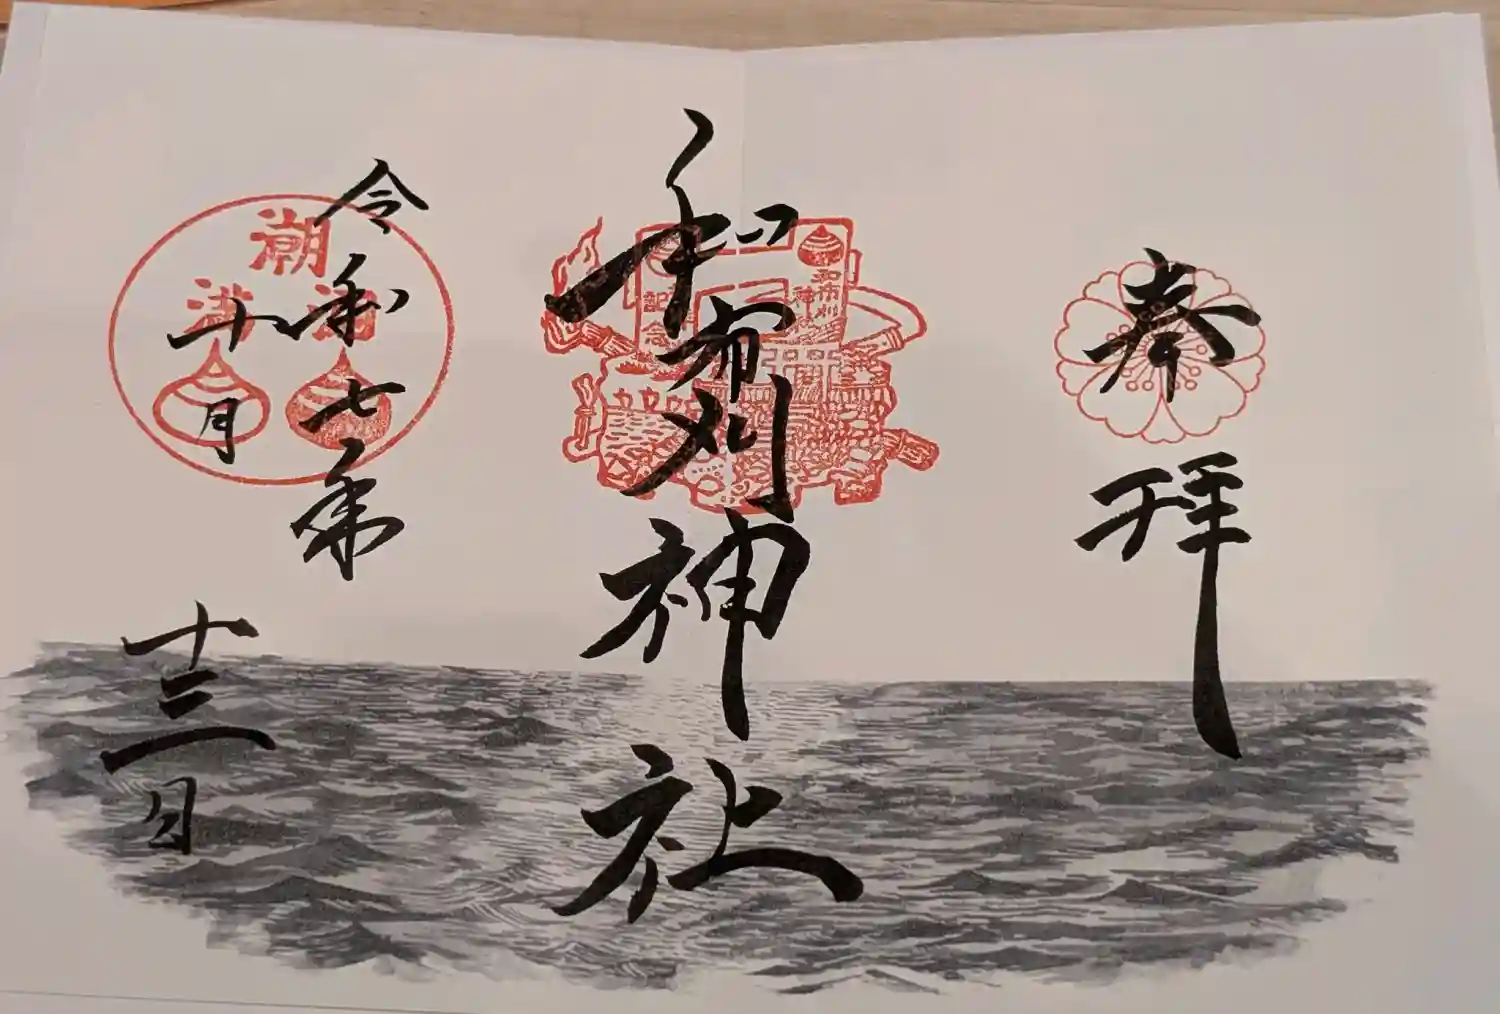 奉拝
和布刈神社
和布刈
神
記念
令和七年
十月
十三日
潮
満